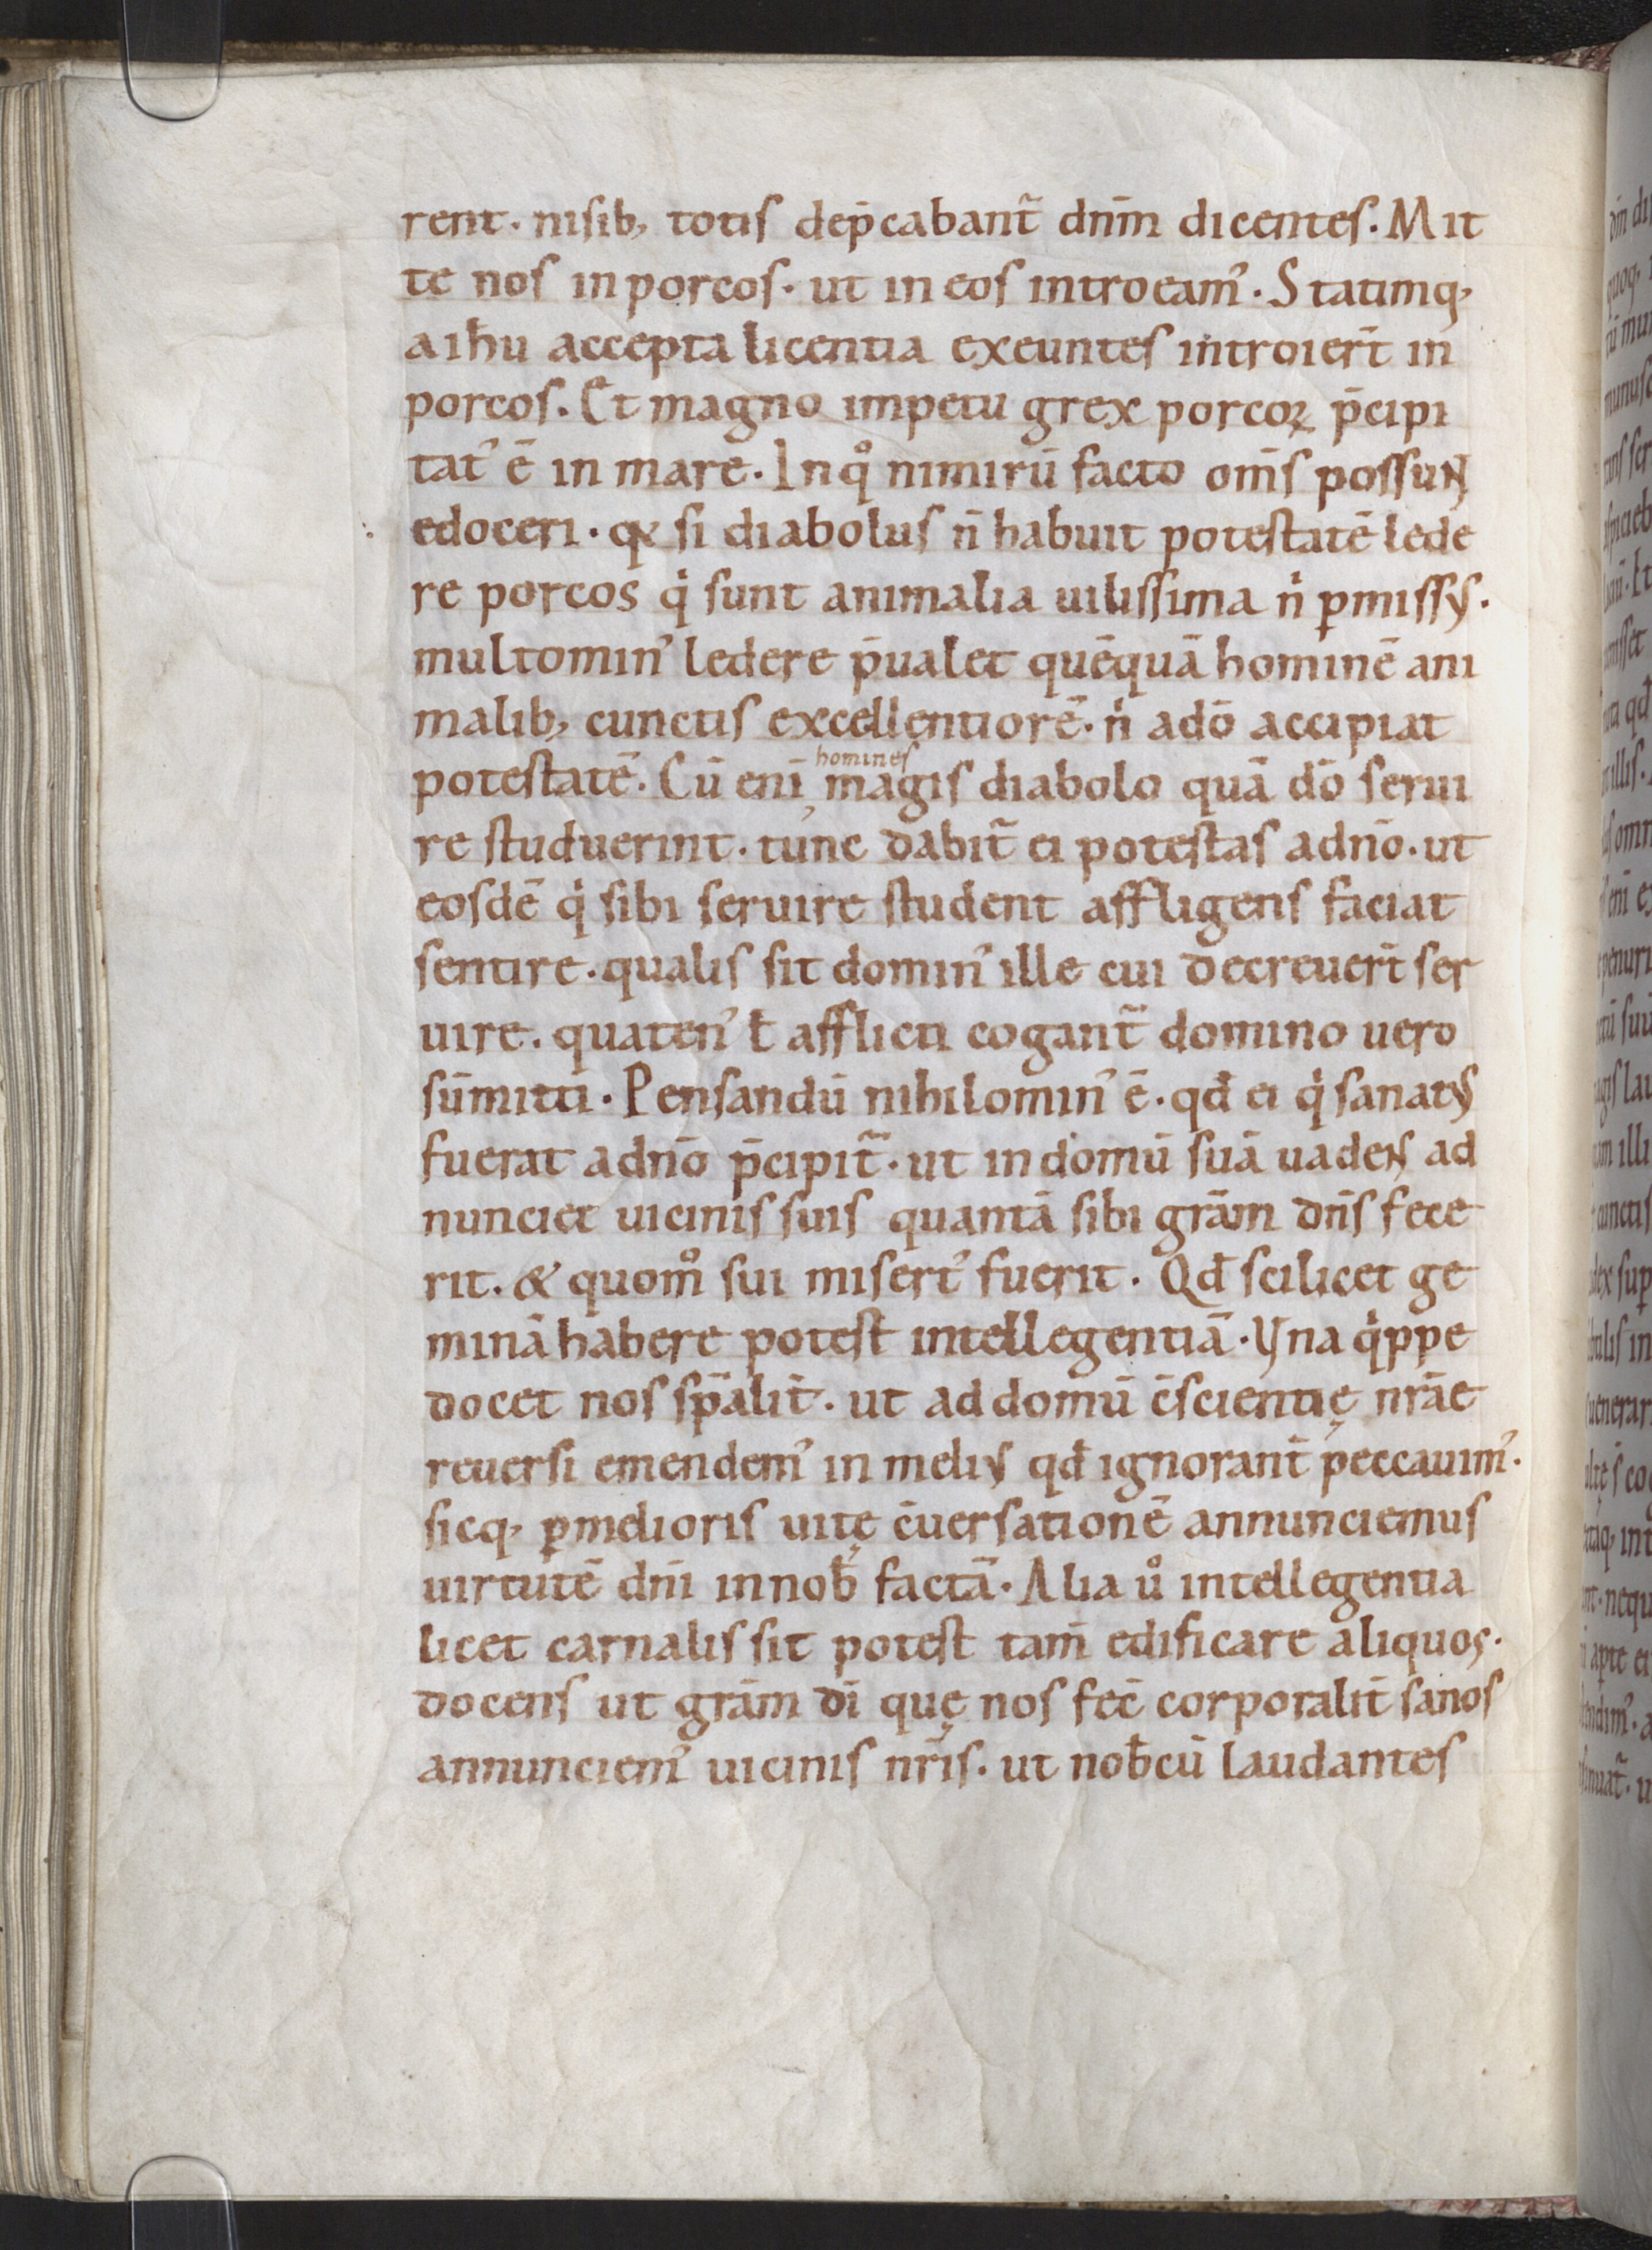 rent· nisib, totis dep̄cabant̄ dn̄m dicentes. Mit
te nos in porcos· ut in eos introeamꝰ. Statimq,
a ihu accepta licentia exeuntes introiert̄ in
porcos. Et magno impetu grex porcoꝝ p̄cipi
tatꝰ ē in mare. In qͦ nimirū facto om̄s possuɴt
edoceri· qꝫ si diabolus n̄ habuit potestatē lede
re porcos qͥ sunt animalia uilissima nͥ ꝑmissus.
multominꝰ ledere p̄ualet quēquā hominē ani
malib, cunctis excellentiorē. nͥ adō accipiat
potestatē. Cū eni homines magis diabolo quā dō serui
re studuerint· tunc dabit̄ ei potestas adn̄o. ut
eosdē qͥ sibi seruire student affligens faciat
sentire. qualis sit dominꝰ ille cui decreuert̄ ser
uire. quatenꝰ ꝉ afflicti cogant̄ domino uero
sūmitti. Pensandū nihilominꝰ ē. qđ ei qͥ sanatus
fuerat adn̄o p̄cipit̄. ut in domū suā uadens ad
nunciet uicinis suis quantā sibi grām dn̄s fece
rit. & quomͦ sui misertꝰ fuerit. Qđ scilicet ge
minā habere potest intellegentiā. Vna qͥppe
docet nos sp̄alit̄. ut ad domū c̄scientię nr̄ae
reuersi emendemꝰ in melius qđ ignorant̄ peccauimꝰ.
sicq, ꝑmelioris uitę c̄uersationē annunciemus
uirtutē dn̄i innob̄ factā. Alia uͦ intellegentia
licet carnalis sit potest tam̄ edificare aliquos.
docens ut grām dī quę nos fec̄ corporalit̄ sanos
annunciemꝰ uicinis nr̄is. ut nob̄cū laudantes